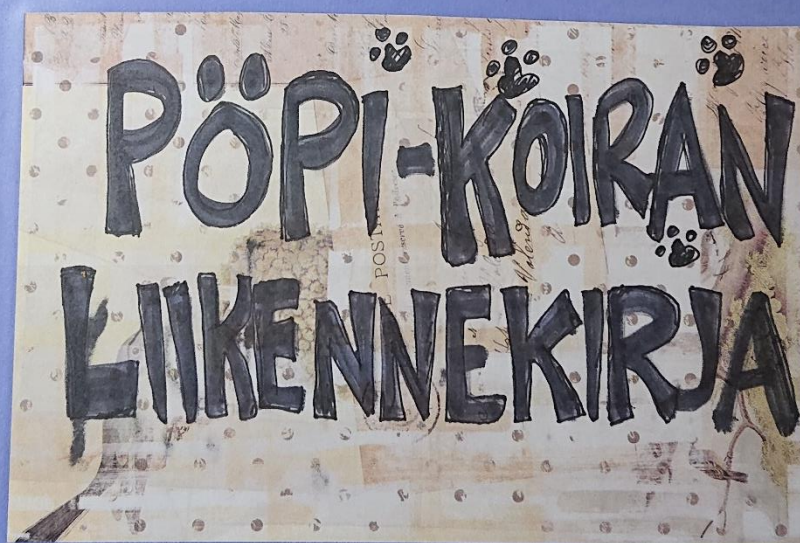 PÖPI-KOIRAN
LIIKENNEKIRJA
POST